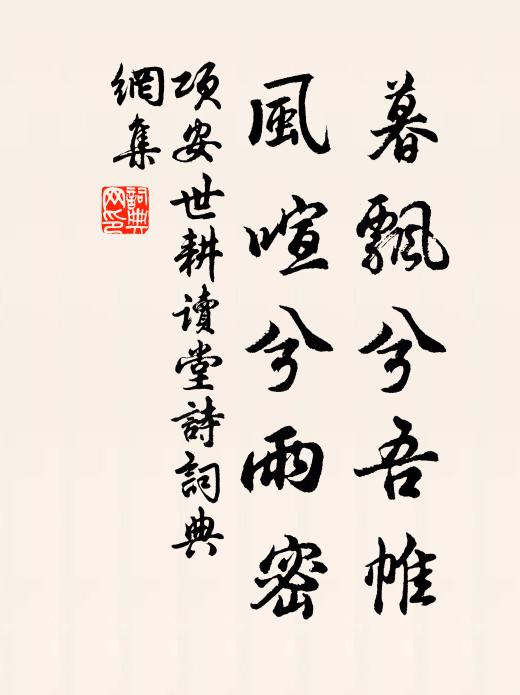 暮飄兮吾帷
風喧兮雨密
項安世耕讀堂詩詞典
網集
詞典
网印